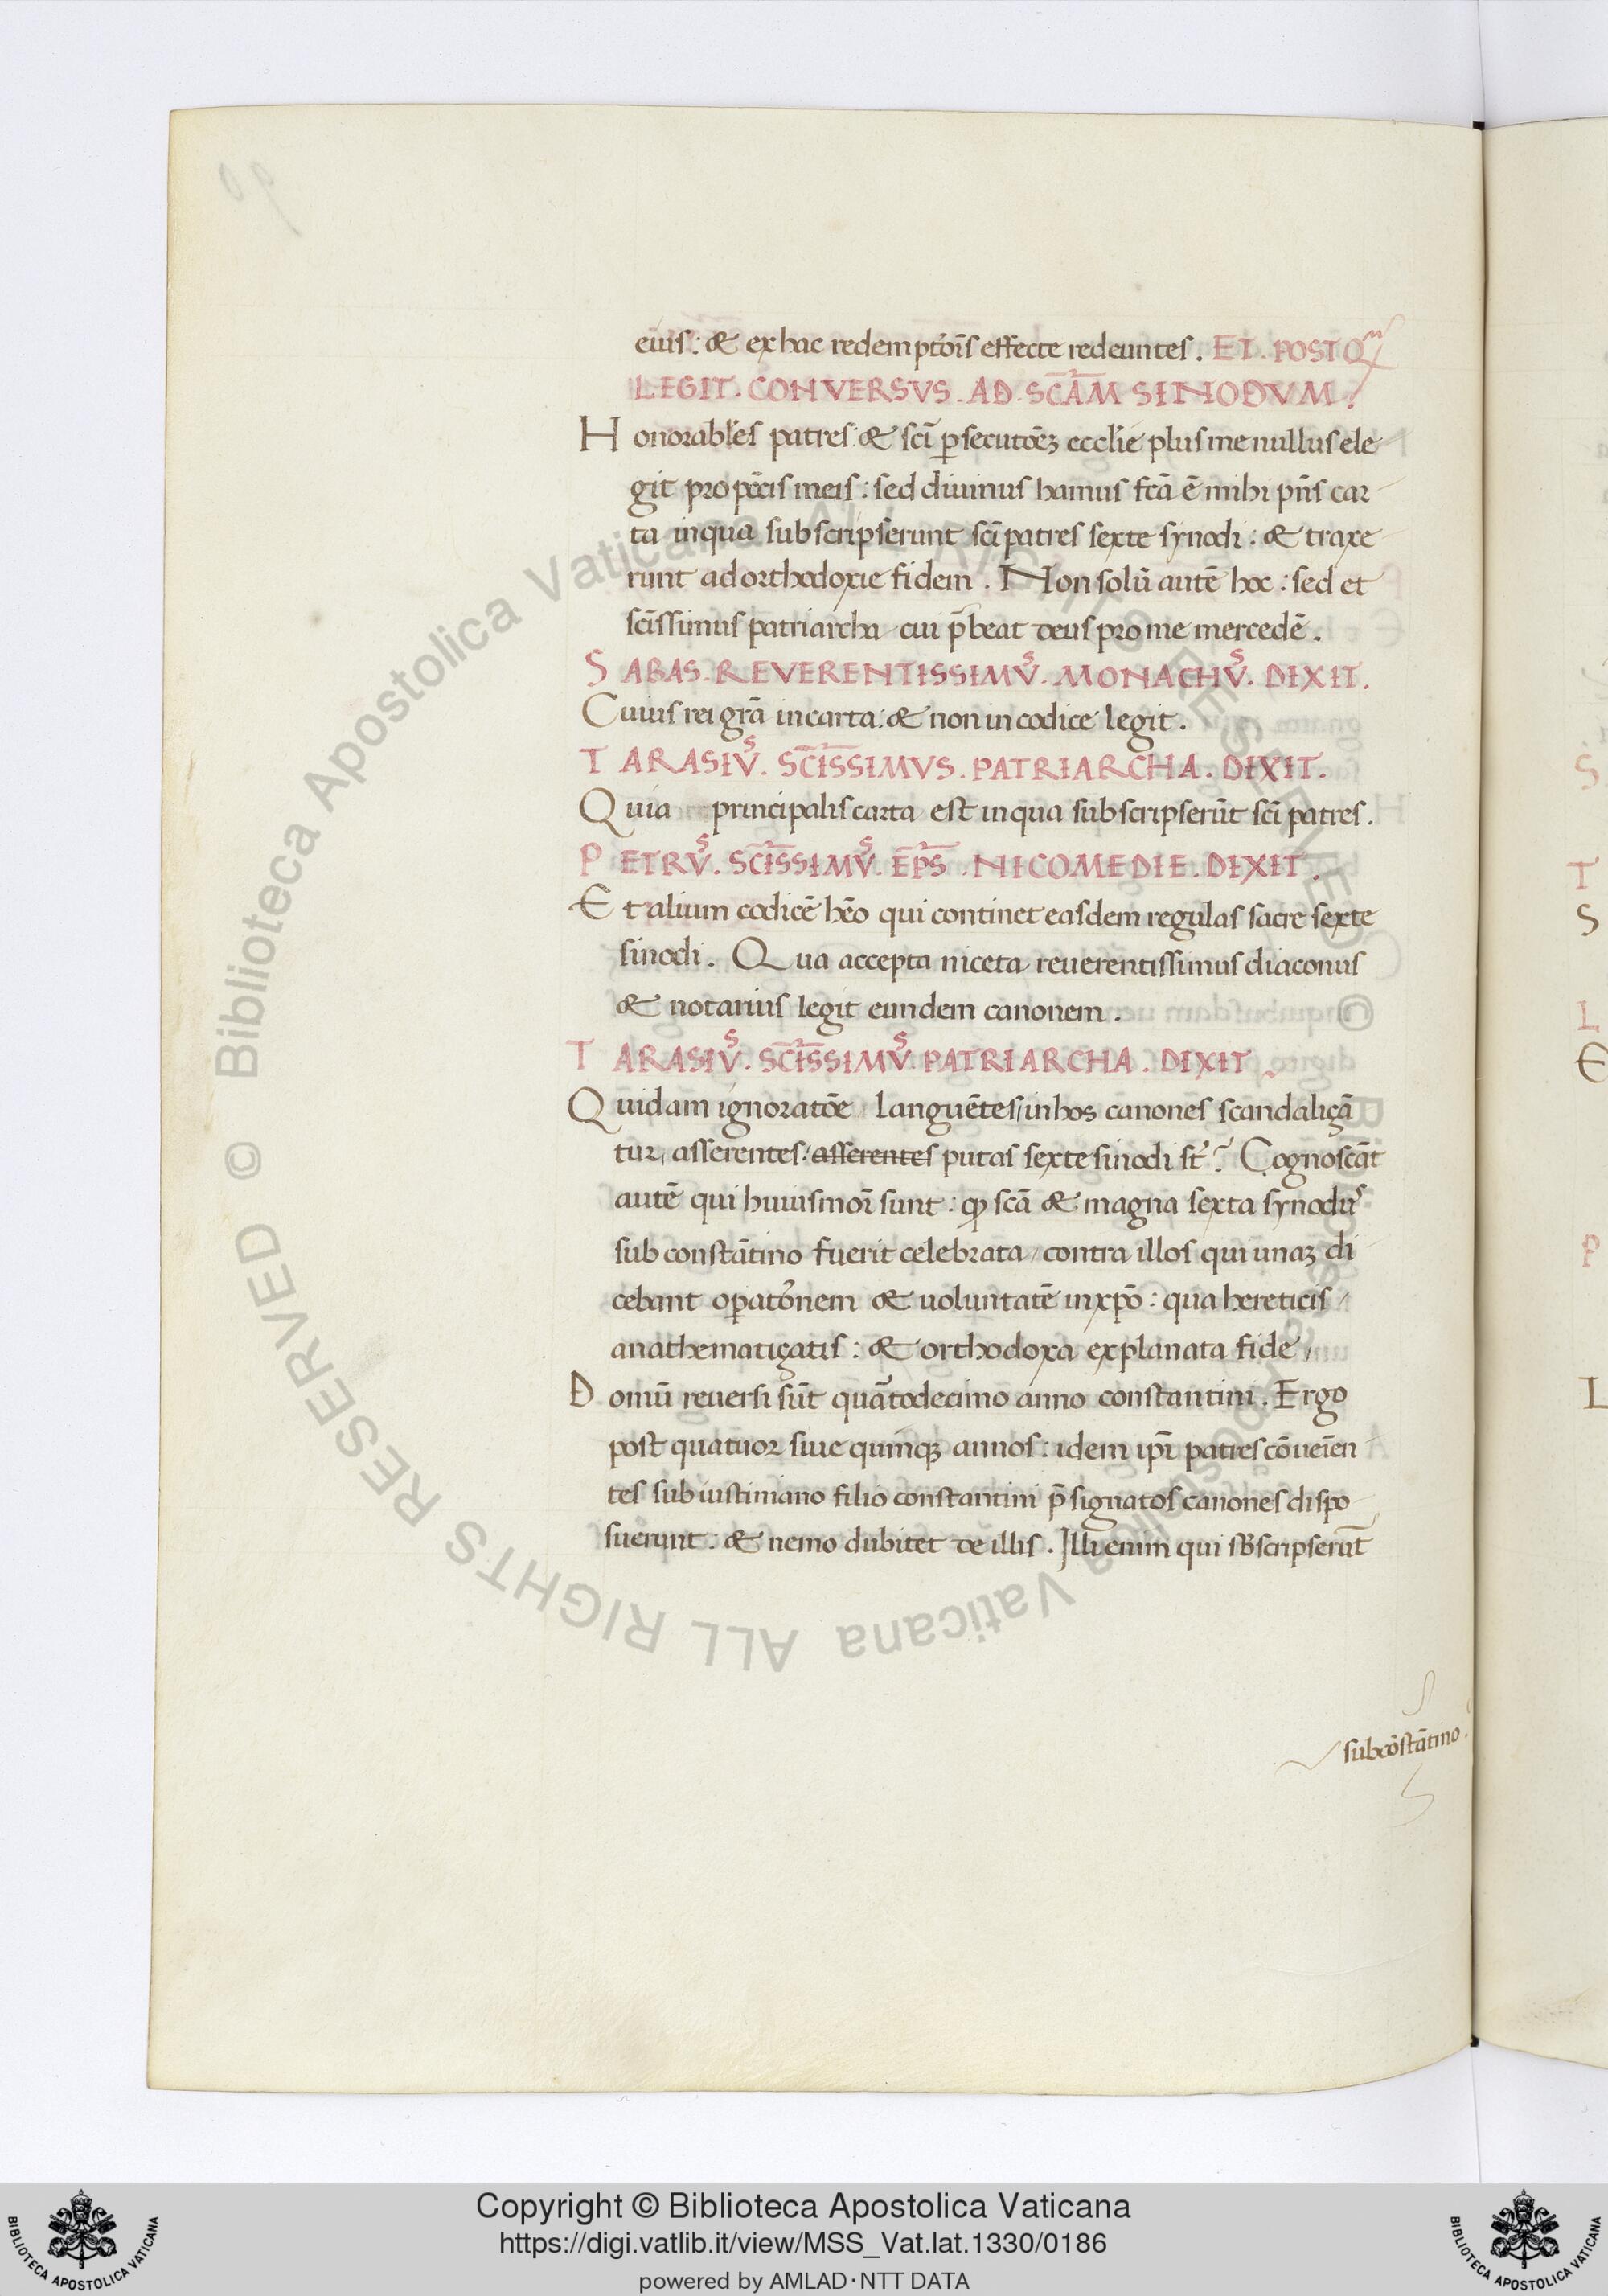 eius: & ex hac redemptõis effecte redeuntes. ET. POSTQᵐ
LEGIT. CONVERSVS. AD. SCĀM SINODVM.
Honorabl'es patres: & scī p̱secutōꝫ eccl'ie plus me nullus ele
git pro pc̄cis meis: sed diuinus hamus fc̄ā ē mihi pn̄s car
ta in qua subscripserunt sc̄i patres sexte synodi: & traxe
runt ad orthodoxie fidem. Non solū autē hoc: sed et
sc̄issimus patriarcha cui p̄beat deus pro me mercedē.
SABAS. REVERENTISSIMVˢ. MONACHVˢ. DIXIT.
Cuius rei gr̄a in carta: & non in codice legit.
TARASIVˢ. SC̄ISSIMVS. PATRIARCHA. DIXIT.
Quia principalis carta est in qua subscripserūt sc̄i patres.
PETRVˢ. SC̄ISSIMVˢ. EP̄S. NICOMEDIE. DIXIT.
Et alium codicē hēo qui continet easdem regulas sacre sexte
sinodi. Qua accepta niceta reuerentissimus diaconus
& notarius legit eundem canonem.
TARASIVˢ. SC̄ISSIMVˢ. PATRIARCHA. DIXIT
Quidam ignoratōe languētes in hos canones scandaliçā
tur, asserentes: asserentes putas sexte sinodi st̄? Cognoscāt
autē qui huiusmōi sunt: ꝙ sc̄a & magna sexta synoduˢ
sub constātino fuerit celebrata, contra illos qui unaꝫ di
cebant op̱atōnem & uoluntatē in xp̄o: qua hereticis
anathematiçatis: & orthodoxa explanata fide,
Domū reuersi sūt quātodecimo anno constantini. Ergo
post quatuor siue quinqꝫ annos: idem ip̄i patres cōueīen
tes sub iustiniano filio constantini p̄signatos canones dispo
suerunt: & nemo dubitet de illis. Illi enim qui sb̄scripserūt
sub cōstātino.
Copyright © Biblioteca Apostolica Vaticana
https://digi.vatlib.it/view/MSS_Vat.lat.1330/0186
powered by AMLAD·NTT DATA
BIBLIOTECA APOSTOLICA VATICANA
BIBLIOTECA APOSTOLICA VATICANA
© Biblioteca Apostolica Vaticana ALL RIGHTS RESERVED
© Biblioteca Apostolica Vaticana ALL RIGHTS RESERVED